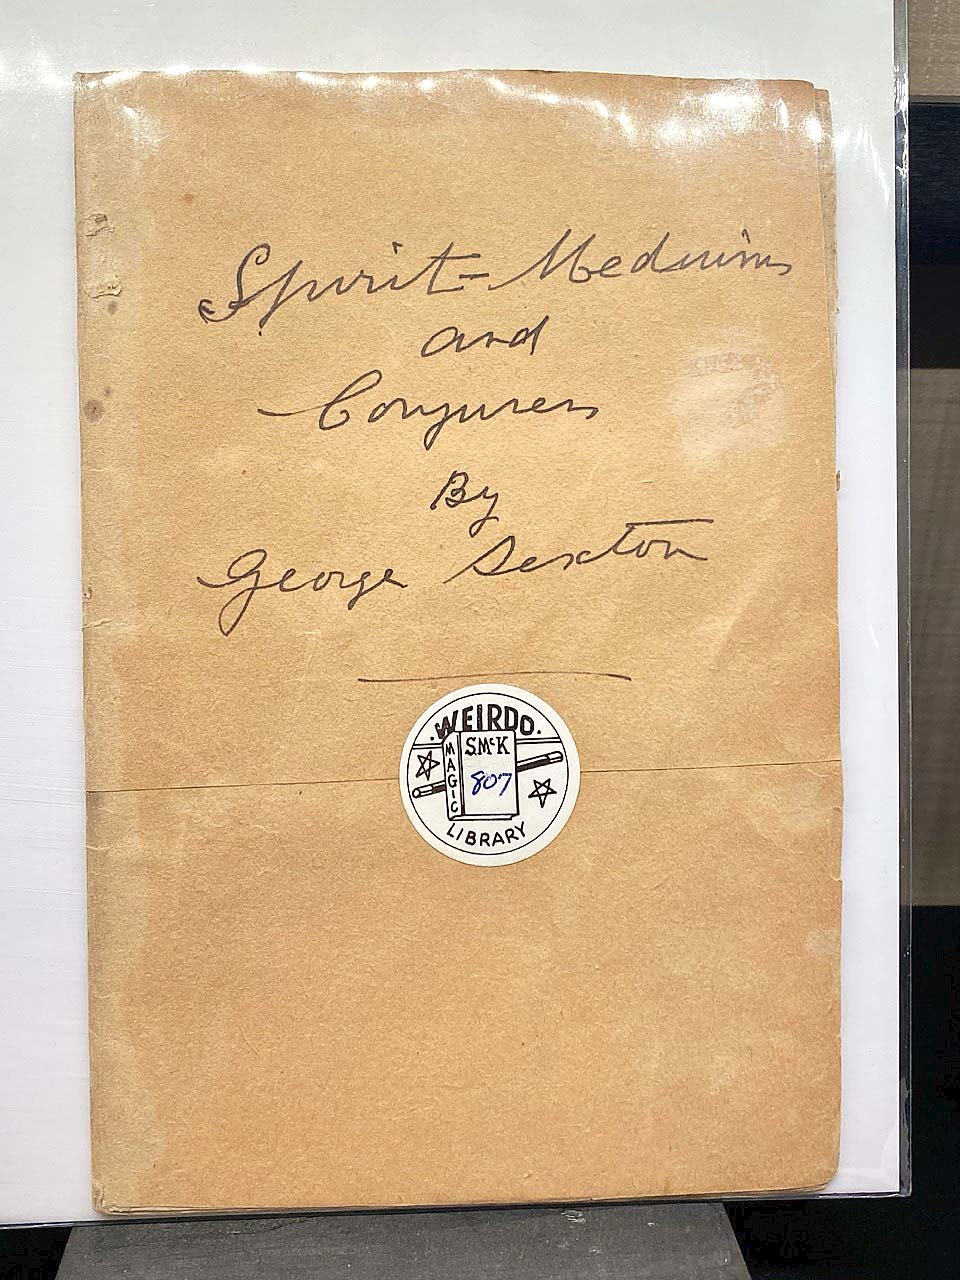 Spirit-Mediums
and
Conjurers
By
George Sexton
WEIRDO
MAGIC
S.McK
807
LIBRARY